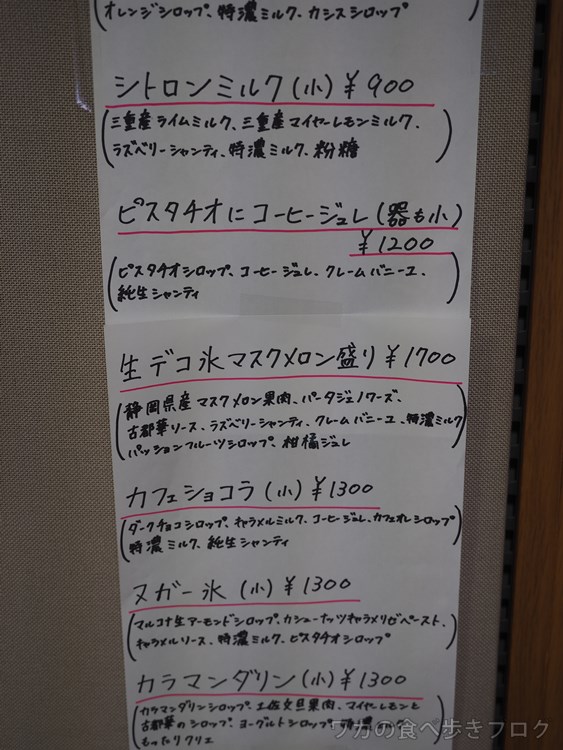 オレンジシロップ、特濃ミルク、カシスシロップ
シトロンミルク(小)¥900
(三重産ライムミルク、三重産マイヤーレモンミルク、
ラズベリーシャンティ、特濃ミルク、粉糖)
ピスタチオにコーヒージュレ(器も小)
¥1200
(ピスタチオシロップ、コーヒージュレ、クレームバニーユ、
純生シャンティ)
生デコ氷マスクメロン盛り¥1700
(静岡県産マスクメロン果肉、パータジェノワーズ、
古都華ソース、ラズベリーシャンティ、クレームバニーユ、特濃ミルク
パッションフルーツシロップ、柑橘ジュレ)
カフェショコラ(小)¥1300
(ダークチョコシロップ、キャラメルミルク、コーヒージュレ、カフェオレシロップ
特濃ミルク、純生シャンティ)
ヌガー氷(小)¥1300
(マルコナ生アーモンドシロップ、カシューナッツキャラメリゼペースト、
キャラメルソース、特濃ミルク、ピスタチオシロップ)
カラマンダリン(小)¥1300
(カラマンダリンシロップ、土佐文旦果肉、マイヤーレモンと
古都華のシロップ、ヨーグルトシロップ、特濃ミルク
もったりクリエ
ワカの食べ歩きブログ